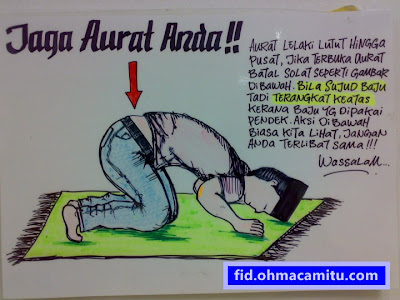 Jaga Aurat Anda!!
AURAT LELAKI LUTUT HINGGA
PUSAT, JIKA TERBUKA AURAT
BATAL SOLAT SEPERTI GAMBAR
DIBAWAH. BILA SUJUD BAJU
TADI TERANGKAT KEATAS
KERANA BAJU YG DIPAKAI
PENDEK. AKSI DIBAWAH
BIASA KITA LIHAT, JANGAN
ANDA TERLIBAT SAMA!!!
WASSALAM...
fid.ohmacamitu.com